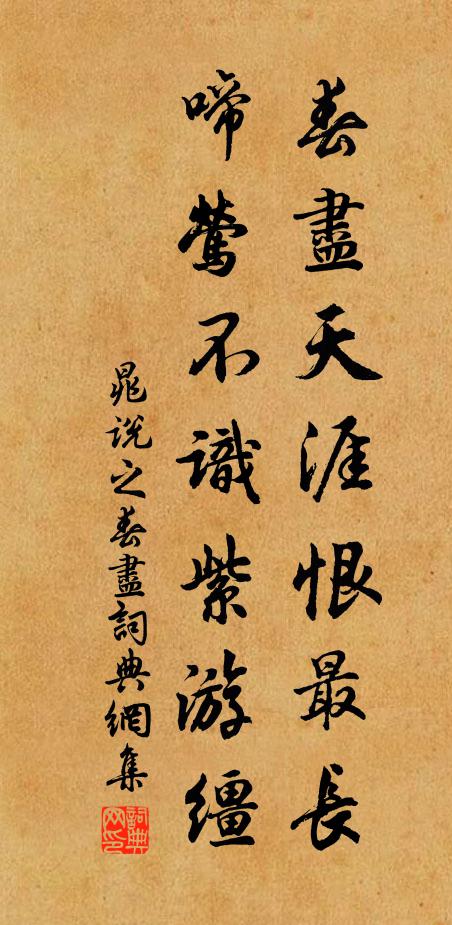 春盡天涯恨最長
啼鶯不識紫游繮
晁説之春盡詞典網集
詞典网印